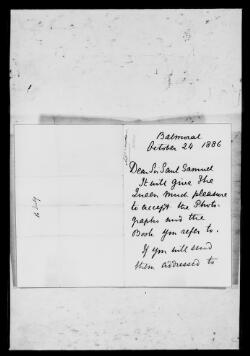 Balmoral
October 24 1886
Dear Sir Saul Samuel
It will give the
Queen much pleasure
to accept the Photo-
graphs and the
Book you refer to.
If you will send
them addressed to